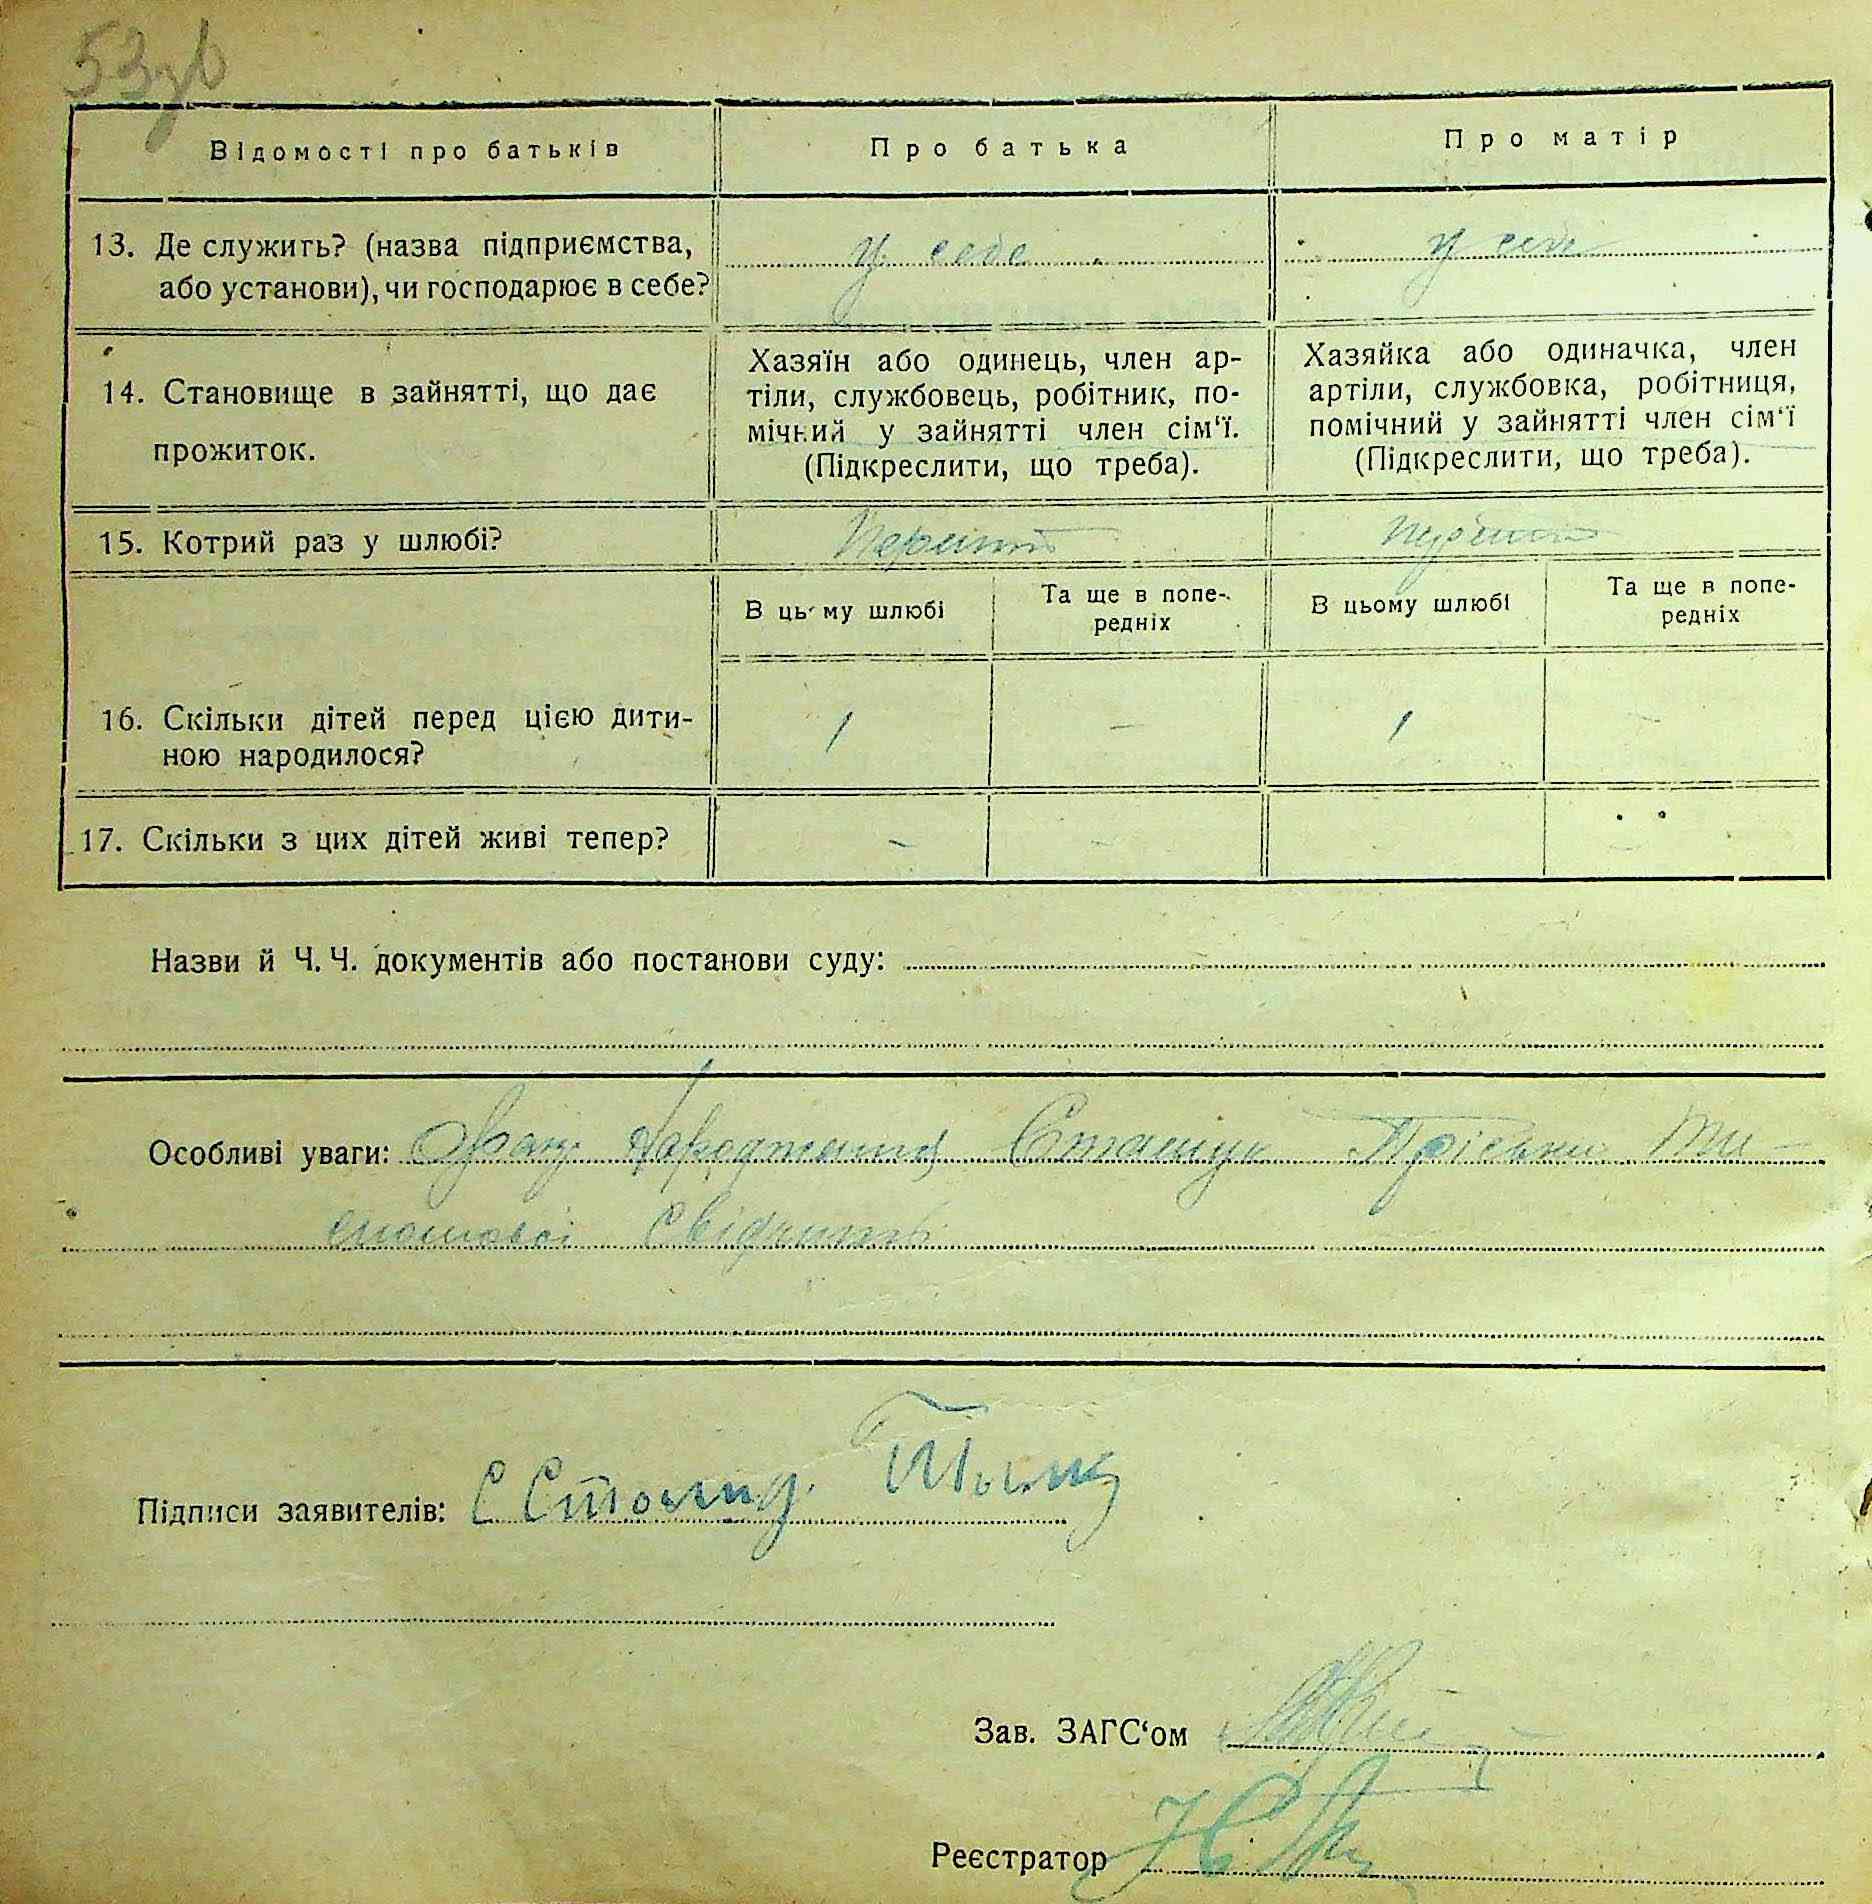 53зв
Відомості про батьків
Про батька
Про матір
13. Де служить? (назва підприємства,
або установи), чи господарює в себе?
у себе
у себе
14. Становище в зайнятті, що дає
прожиток.
Хазяїн або одинець, член ар-
тіли, службовець, робітник, по-
мічний у зайнятті член сім‘ї.
(Підкреслити, що треба).
Хазяйка або одиначка, член
артіли, службовка, робітниця,
помічний у зайнятті член сім‘ї
(Підкреслити, що треба).
15. Котрий раз у шлюбі?
В цьому шлюбі
Та ще в попе-
редніх
В цьому шлюбі
Та ще в попе-
редніх
16. Скільки дітей перед цією дити-
ною народилося?
1 - 1 -
17. Скільки з цих дітей живі тепер?
- -
Назви й Ч. Ч. документів або постанови суду:
Особливі уваги: Факт народження Сташук Пріськи Ти-
Підписи заявителів:
Зав. ЗАГС‘ом
Реєстратор